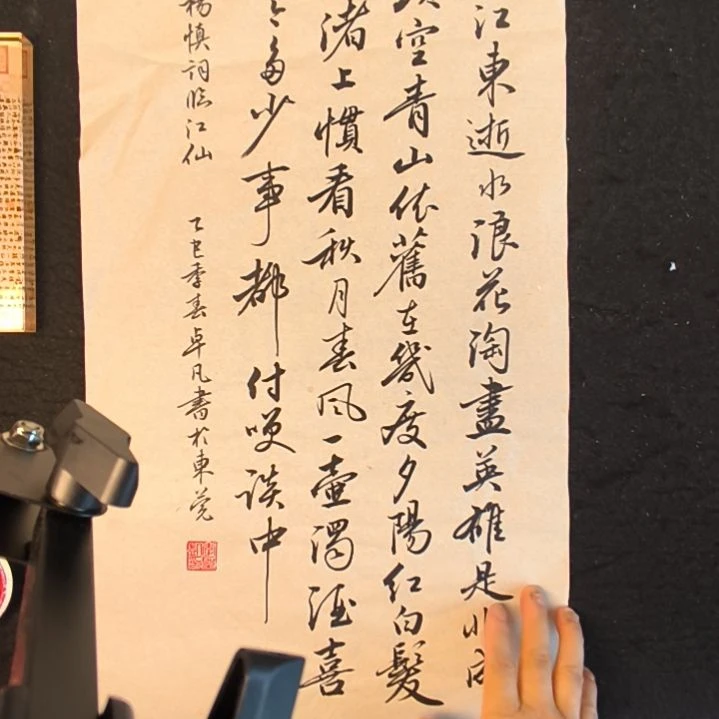 江東逝水浪花淘盡英雄是非成
空青山依舊在幾度夕陽紅白髮
渚上慣看秋月春風一壺濁酒喜
今多少事都付笑談中
楊慎詞臨江仙 乙巳季春卓凡書於東莞